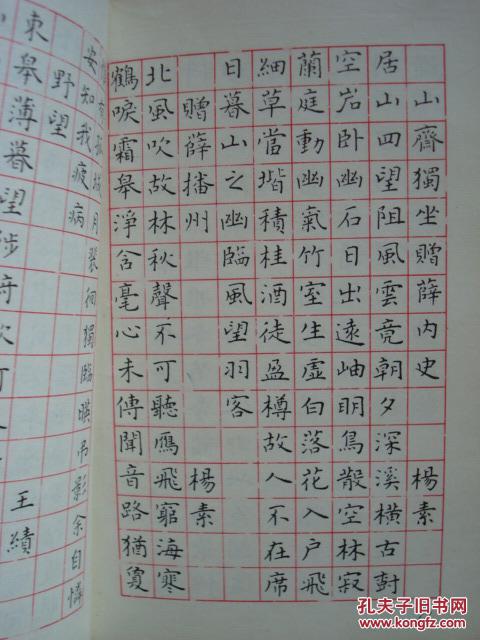 山齋獨坐贈薛內史 楊素
居山四望阻風雲竟朝夕深溪橫古尌
空岩卧幽石日出遠岫明鳥散空林寂
蘭庭動幽氣竹室生虛白落花入戶飛
細草當堦積桂酒徒盈樽故人不在席
日暮山之幽臨風望羽客
贈薛播州 楊素
北風吹故林秋聲不可聽鴈飛窮海寒
鶴唳霜皋淨含毫心未傳聞音路猶敻
有孤城月裴徊獨臨暎吊影余自憐
安知我疲病
野望 王績
東皋薄暮望徙倚欲
孔夫子旧书网
www.kongfz.com